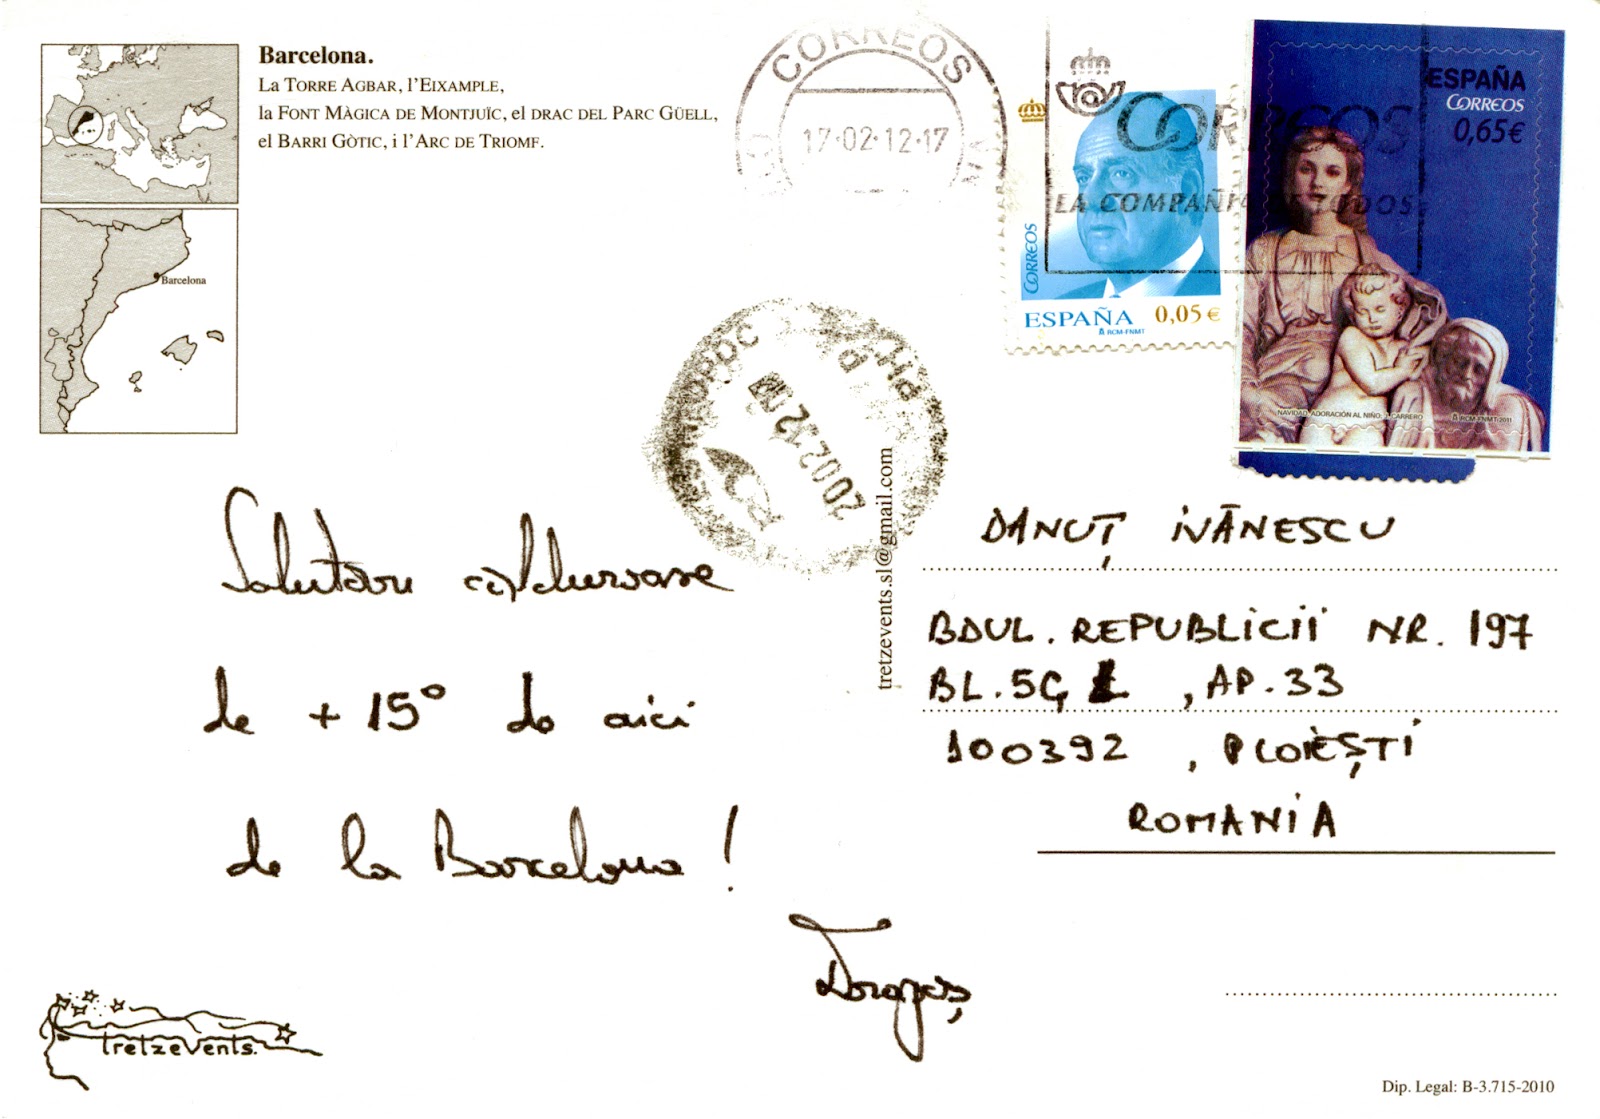 Barcelona.
La Torre Agbar, l'Eixample,
la Font Màgica de Montjuïc, el drac del Parc Güell,
el Barri Gòtic, i l'Arc de Triomf.
Barcelona
CORREOS
17-02-12-17
CORREOS
LA COMPAÑIA DE TODOS
CORREOS
ESPAÑA 0,05 €
RCM-FNMT
ESPAÑA
CORREOS
0,65€
NAVIDAD. ADORACIÓN AL NIÑO: J. CARRERO
RCM-FNMT 2011
20.02.12
tretzevents.sl@gmail.com
Salutari călduroase
de +15° de aici
de la Barcelona!
Dragoș
DANUȚ IVĂNESCU
BDUL. REPUBLICII NR. 197
BL. 5G, AP. 33
100392, PLOIEȘTI
ROMANIA
tretzevents.
Dip. Legal: B-3.715-2010